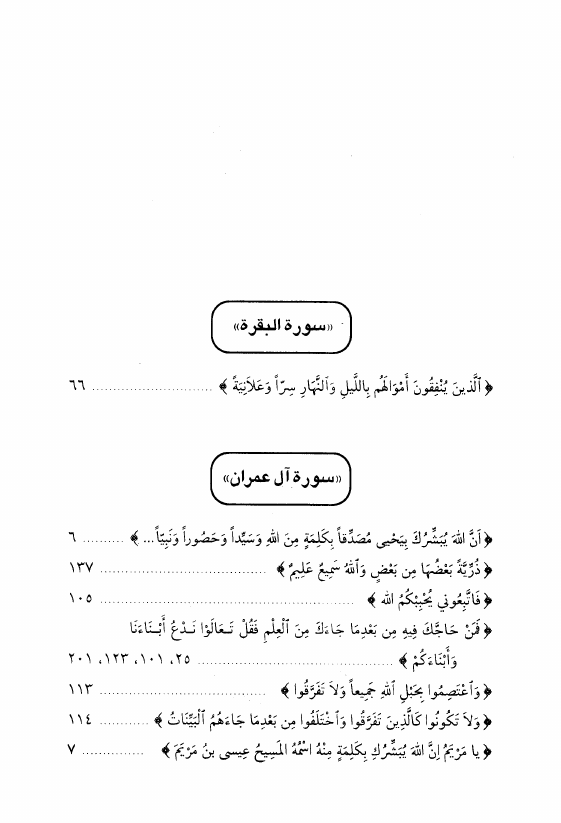 «سورة البقرة»
﴿ ٱلَّذينَ يُنْفِقُونَ أَمْوَالَهُم بِاللَّيلِ وَٱلنَّهَارِ سِرّاً وَعَلاَنِيَةً ﴾ ............................ ٦٦
«سورة آل عمران»
﴿ أَنَّ اللهَ يُبَشِّرُكَ بِيَحْيى مُصَدِّقاً بِكَلِمَةٍ مِنَ اللهِ وَسَيِّداً وَحَصُوراً وَنَبِيّاً... ﴾ .......... ٦
﴿ ذُرِّيَّةً بَعْضُهَا مِن بَعْضٍ وَٱللهُ سَمِيعٌ عَلِيمٌ ﴾ ...................................... ١٣٧
﴿ فَاتَّبِعُوني يُحْبِبْكُمُ الله ﴾ ........................................................... ١٠٥
﴿ فَمَنْ حَاجَّكَ فِيهِ مِن بَعْدِمَا جَاءَكَ مِنَ ٱلْعِلْمِ فَقُلْ تَعَالَوْا نَدْعُ أَبْنَاءَنَا
وَأَبْنَاءَكُمْ ﴾ ............................................. ٢٥، ١٠١، ١٢٣، ٢٠١
﴿ وَٱعْتَصِمُوا بِحَبْلِ ٱللهِ جَمِيعاً وَلاَ تَفَرَّقُوا ﴾ ...................................... ١١٣
﴿ وَلاَ تَكُونُوا كَالَّذِينَ تَفَرَّقُوا وَٱخْتَلَفُوا مِن بَعْدِمَا جَاءَهُمُ ٱلْبَيِّنَاتُ ﴾ ............ ١١٤
﴿ يا مَرْيَمُ إِنَّ اللهَ يُبَشِّرُكِ بِكَلِمَةٍ مِنْهُ اسْمُهُ المَسِيحُ عِيسى بنُ مَرْيَمَ ﴾ ............... ٧